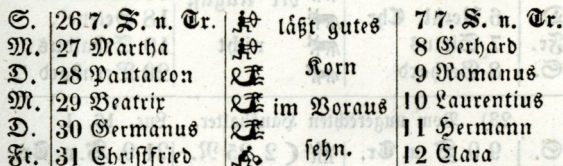 S. 26 7. S. n. Tr. läßt gutes 7 7. S. n. Tr.
M. 27 Martha 8 Gerhard
D. 28 Pantaleon Korn 9 Romanus
M. 29 Beatrix im Voraus 10 Laurentius
D. 30 Germanus 11 Hermann
Fr. 31 Christfried sehn. 12 Clara